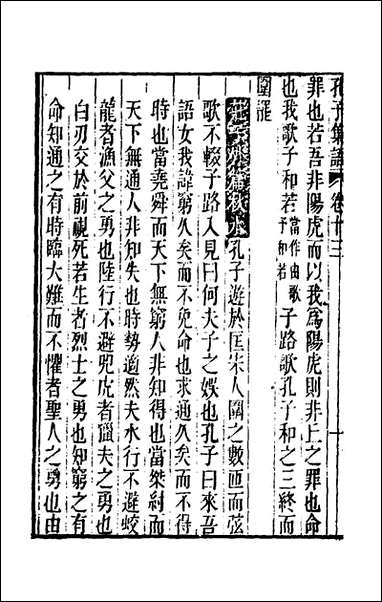 孔子集語 卷十三 十
罪也若吾非陽虎而以我爲陽虎則非上之罪也命
也我歌子和若當作由歌予和若子路歌孔子和之三終而
圍罷
莊子外篇秋水孔子遊於匡宋人圍之數匝而弦
歌不輟子路入見曰何夫子之娛也孔子曰來吾
語女我諱窮久矣而不免命也求通久矣而不得
時也當堯舜而天下無窮人非知得也當桀紂而
天下無通人非知失也時勢適然夫水行不避蛟
龍者漁父之勇也陸行不避兕虎者獵夫之勇也
白刃交於前視死若生者烈士之勇也知窮之有
命知通之有時臨大難而不懼者聖人之勇也由